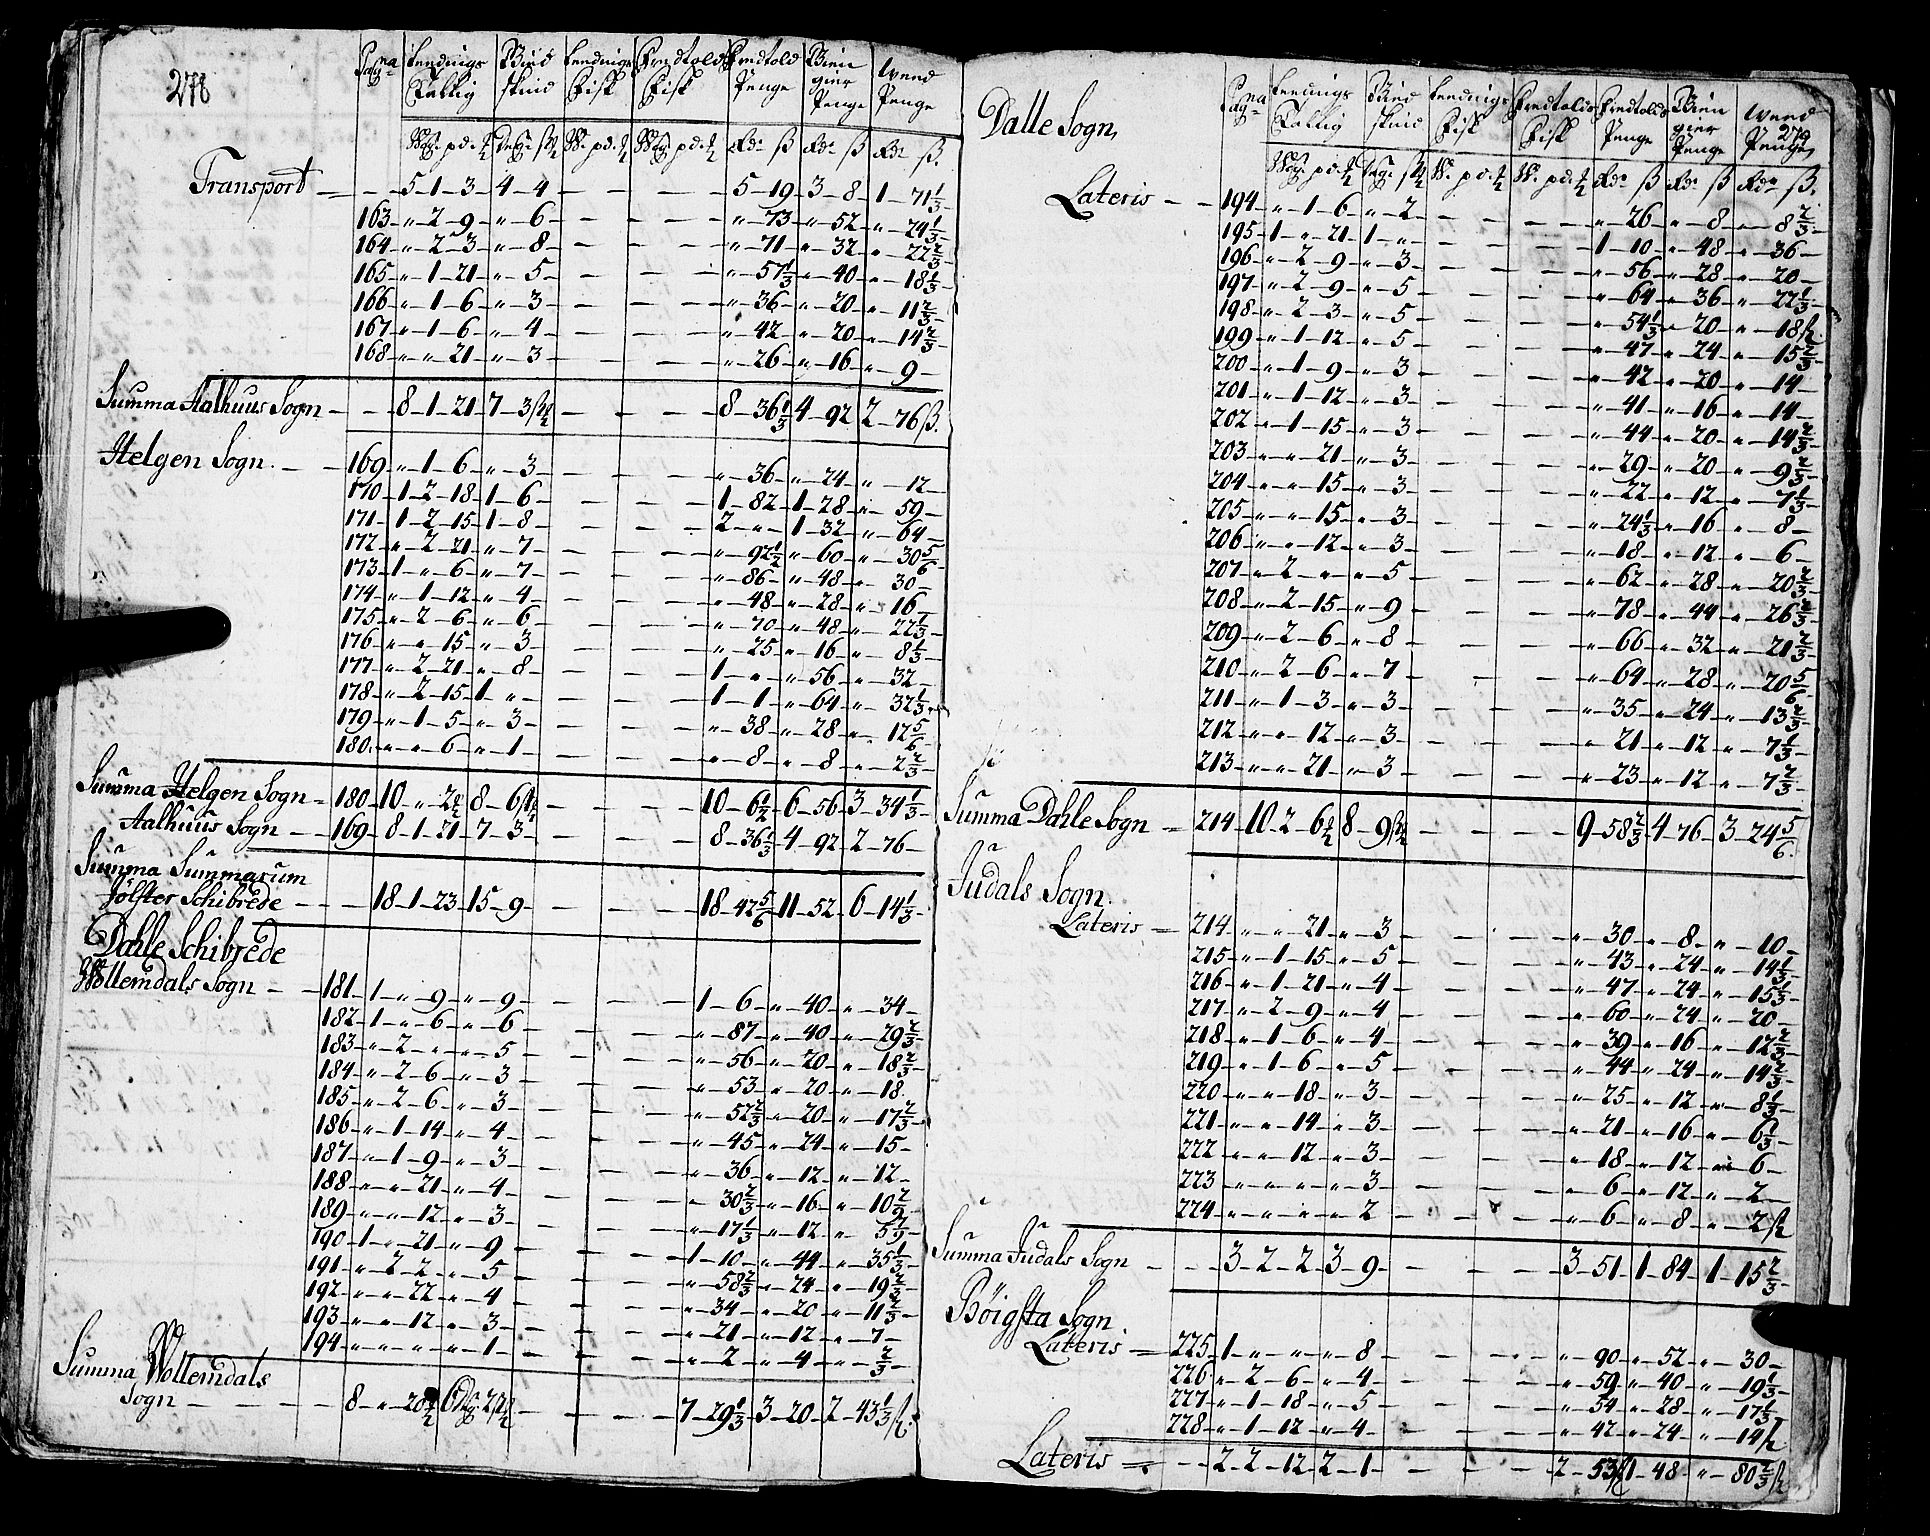 278
Pagna Lendings Tallig Bud skind Lendings Fisk Fredtold Fisk Fredtold Penge Bien gier Penge Weed Penge
Transport — — 5-1-3 4-4 — — 5-19 3-8 1-71 1/3
163 "-2-9 "-6 — — "-73 "-52 "-24 1/3
164 "-2-3 "-8 — — "-71 "-32 "-22 2/3
165 "-1-21 "-5 — — "-57 1/3 "-40 "-18 1/3
166 "-1-6 "-3 — — "-36 "-20 "-11 2/3
167 "-1-6 "-4 — — "-42 "-20 "-14 2/3
168 "-"-21 "-3 — — "-26 "-16 "-9
Summa Aalhuus Sogn — — 8-1-21 7-3 — — 8-36 1/3 4-92 2-76 ß.
Helgen Sogn. — — 169 "-1-6 "-3 — — "-36 "-24 "-12
170 1-2-18 1-6 — — 1-82 1-28 "-59
171 1-2-15 1-8 — — 2-" 1-32 "-64
172 "-2-21 "-7 — — "-92 1/2 "-60 "-30 5/6
173 1-"-6 "-7 — — "-86 "-48 "-30
174 "-1-12 "-4 — — "-48 "-28 "-16
175 "-2-6 "-6 — — "-70 "-48 "-22 1/3
176 "-"-15 "-3 — — "-25 "-16 "-8 1/3
177 "-2-21 "-8 — — 1-" "-56 "-32
178 "-2-15 1-" — — 1-1 "-64 "-32 1/3
179 "-1-5 "-3 — — "-38 "-28 "-12 5/6
180 "-"-6 "-1 — — "-8 "-8 "-2 2/3
Summa Helgen Sogn 180 10-"-2 8-6 — — 10-6 1/2 6-56 3-34 1/3
Aalhuus Sogn — 169 8-1-21 7-3 — — 8-36 1/3 4-92 2-76
Summa Summarum
Jölster Schibrede — — 18-1-23 15-9 — — 18-42 5/6 11-52 6-14 1/3
Dahle Schibrede
Wollemdals Sogn — 181 1-"-9 "-9 — — 1-6 "-40 "-34
182 1-"-6 "-6 — — "-87 "-40 "-29 2/3
183 "-2-" "-5 — — "-56 "-20 "-18 2/3
184 "-2-6 "-3 — — "-53 "-20 "-18
185 "-2-6 "-3 — — "-52 2/3 "-20 "-17 2/3
186 "-1-14 "-4 — — "-45 "-24 "-15
187 "-1-9 "-3 — — "-36 "-12 "-12
188 "-"-21 "-4 — — "-30 2/3 "-16 "-10 2/9
189 "-"-12 "-3 — — "-17 1/3 "-12 "-5 7/9
190 1-"-21 "-9 — — 1-10 "-44 "-35 1/3
191 "-2-2 "-5 — — "-58 2/3 "-24 "-19 2/3
192 "-"-22 "-4 — — "-34 "-20 "-11 2/3
193 "-"-12 "-3 — — "-21 "-12 "-7
194 "-"-" "-1 — — "-2 "-4 "-2/3
Summa Wollemdals
Sogn — — 8-"-20 6 2 — — 7-29 1/3 3-20 2-43 1/3 ß.
279
Dalle Sogn,
Pagna Lendings Tallig Bud skind Lendings Fisk Fredtolds Fisk Fredtolds Penge Bien gier Penge Weed Penge
Lateris — 194 "-1-6 "-2 — — "-26 "-8 "-8 2/3
195 1-"-21 1-" — — 1-10 "-48 "-36
196 "-2-9 "-3 — — "-56 "-28 "-20
197 "-2-9 "-5 — — "-64 "-36 "-22 1/3
198 "-2-3 "-5 — — "-54 1/3 "-20 "-18 ß.
199 "-1-12 "-5 — — "-47 "-24 "-15 2/3
200 "-1-9 "-3 — — "-42 "-20 "-14
201 "-1-12 "-3 — — "-41 "-16 "-14
202 "-1-15 "-3 — — "-44 "-20 "-14 2/3
203 "-"-21 "-3 — — "-29 "-20 "-9 2/3
204 "-"-15 "-3 — — "-22 "-12 "-7 1/3
205 "-"-15 "-3 — — "-24 1/3 "-16 "-8
206 "-"-12 "-3 — — "-18 "-12 "-6
207 "-2-" "-5 — — "-62 "-28 "-20 2/3
208 "-2-15 "-9 — — "-78 "-44 "-26 2/3
209 "-2-6 "-8 — — "-66 "-32 "-21 2/3
210 "-2-6 "-7 — — "-64 "-28 "-20 5/6
211 "-1-3 "-3 — — "-35 "-24 "-13 2/3
212 "-"-12 "-3 — — "-21 "-12 "-7 1/3
213 "-"-21 "-3 — — "-23 "-12 "-7 2/3
Summa Dahle Sogn — 214 10-2-6 8-9 — — 9-58 2/3 4-76 3-24 5/6
Judals Sogn.
Lateris — 214 "-"-21 "-3 — — "-30 "-8 "-10
215 "-1-15 "-5 — — "-43 "-24 "-14 1/3
216 "-1-21 "-4 — — "-47 "-24 "-15 1/3
217 "-2-9 "-4 — — "-60 "-24 "-20
218 "-1-6 "-4 — — "-39 "-16 "-12 2/3
219 "-1-6 "-5 — — "-44 "-24 "-14 2/3
220 "-"-18 "-3 — — "-25 "-12 "-8 1/3
221 "-"-14 "-3 — — "-21 "-16 "-6 1/3
222 "-"-12 "-3 — — "-18 "-12 "-6
223 "-"-" "-3 — — "-6 "-12 "-2
224 "-"-" "-2 — — "-6 "-8 "-2 ß
Summa Judals Sogn — — 3-2-2 3-9 — — 3-51 1-84 1-15 2/3
Böigsta Sogn
Lateris — 225 1-"-" "-8 — — "-90 "-52 "-30
226 "-2-6 "-4 — — "-59 "-40 "-19 1/3
227 "-1-18 "-5 — — "-54 "-28 "-17 1/3
228 "-1-12 "-4 — — "-42 "-24 "-14 ß
Lateris — — 2-2-12 2-1 — — 2-53 1-48 "-80 2/3 ß